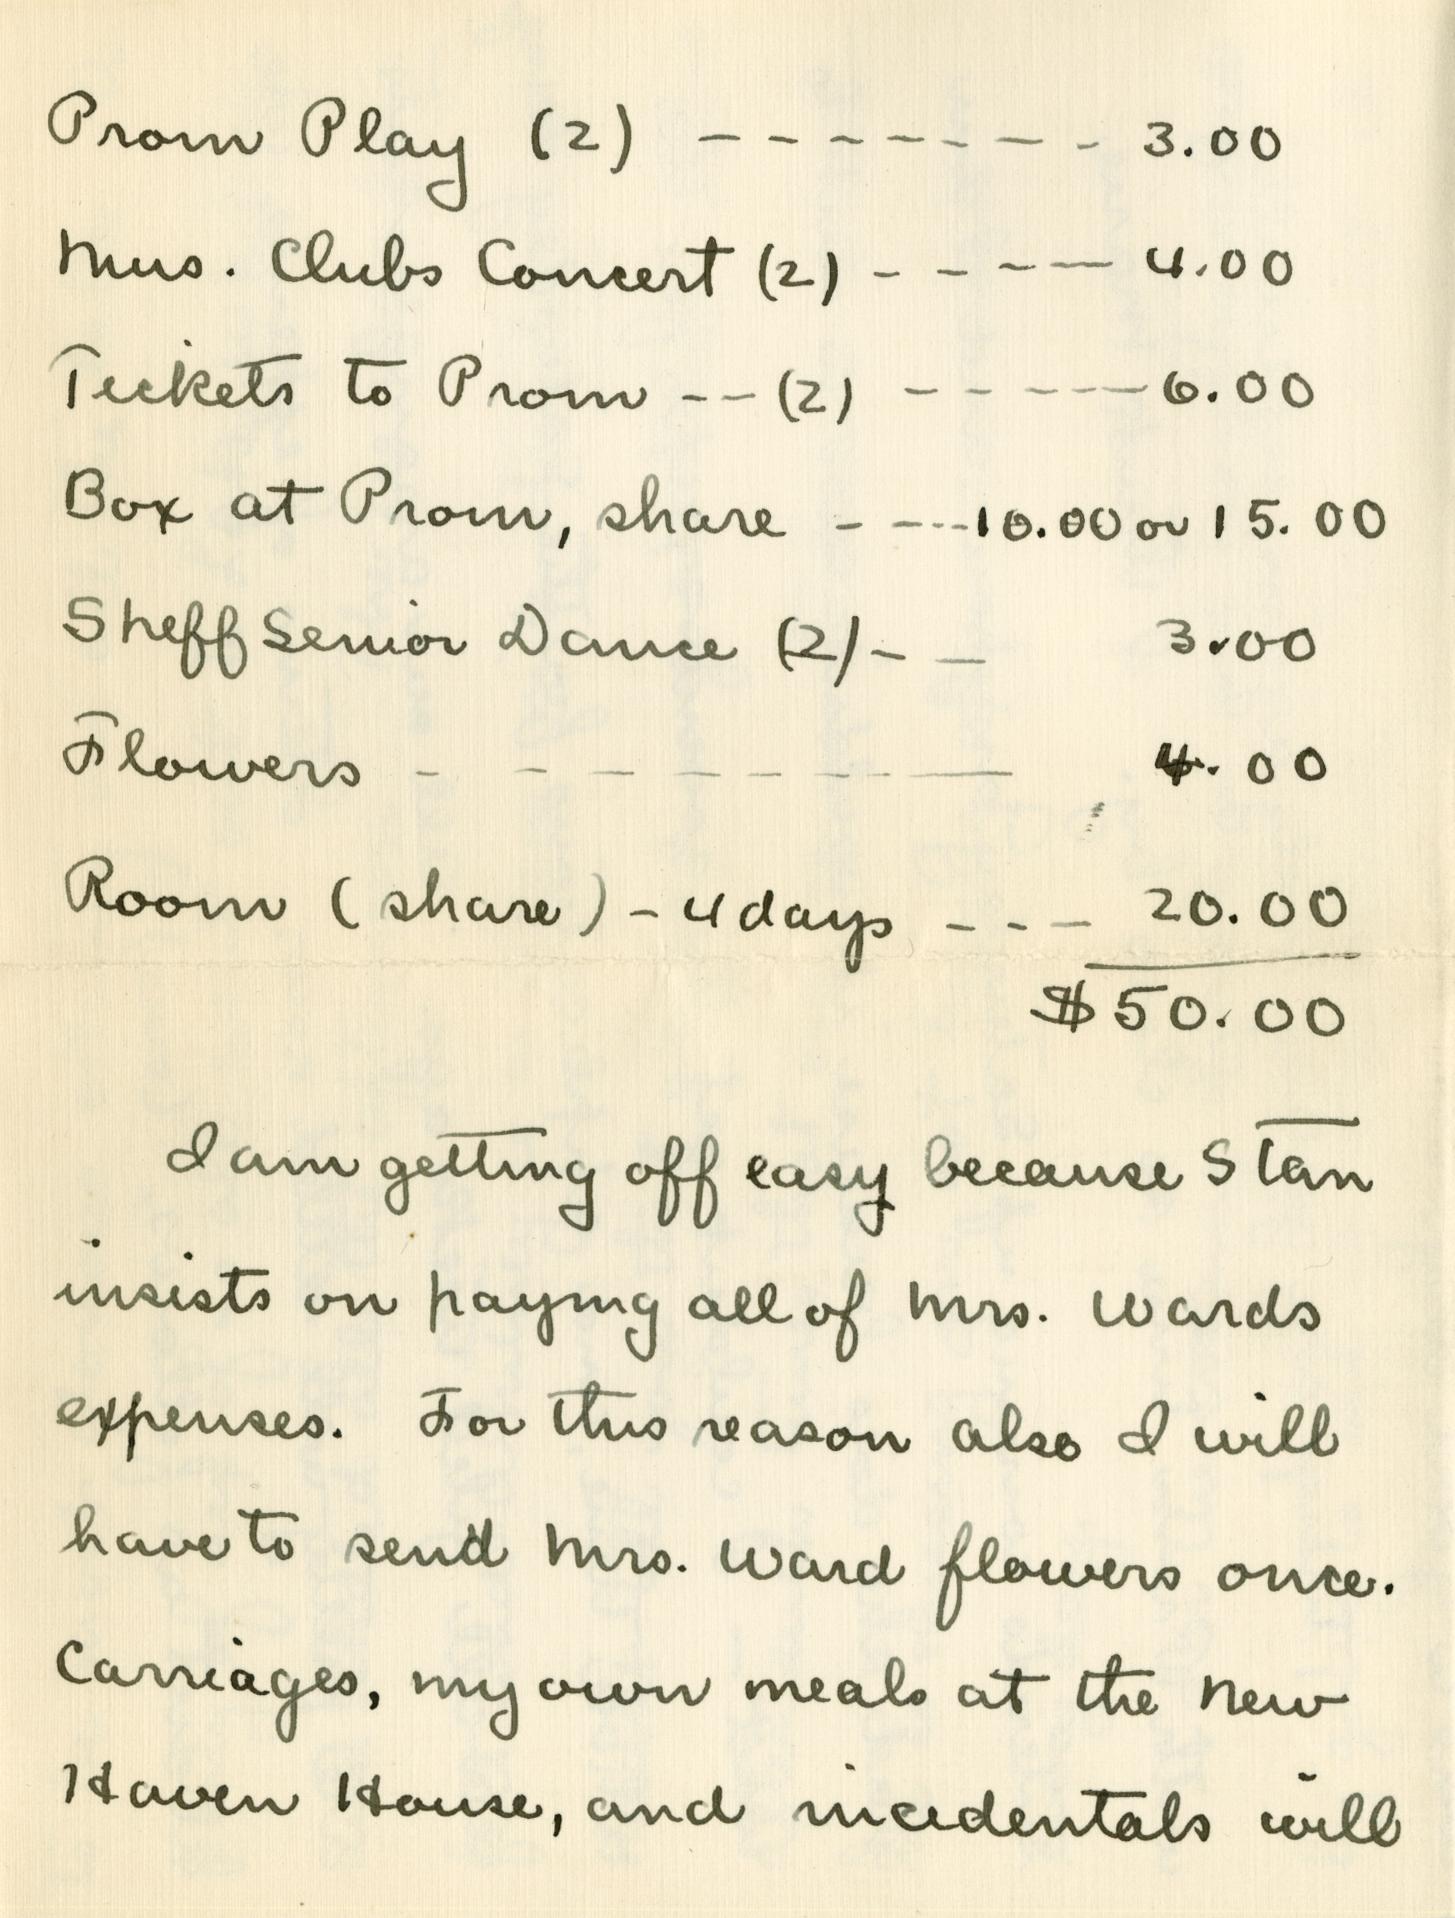 Prom Play (2) - - - - - - - - 3.00
Mus. Clubs Concert (2) - - - - 4.00
Tickets to Prom - - (2) - - - - - 6.00
Box at Prom, share - - - - - 10.00 or 15.00
Sheff Senior Dance (2) - - 3.00
Flowers - - - - - - - - 4.00
Room (share) - 4 days - - - 20.00
$50.00
I am getting off easy because Stan
insists on paying all of Mrs. Wards
expenses. For this reason also I will
have to send Mrs. Ward flowers once.
Carriages, my own meals at the New
Haven House, and incidentals will